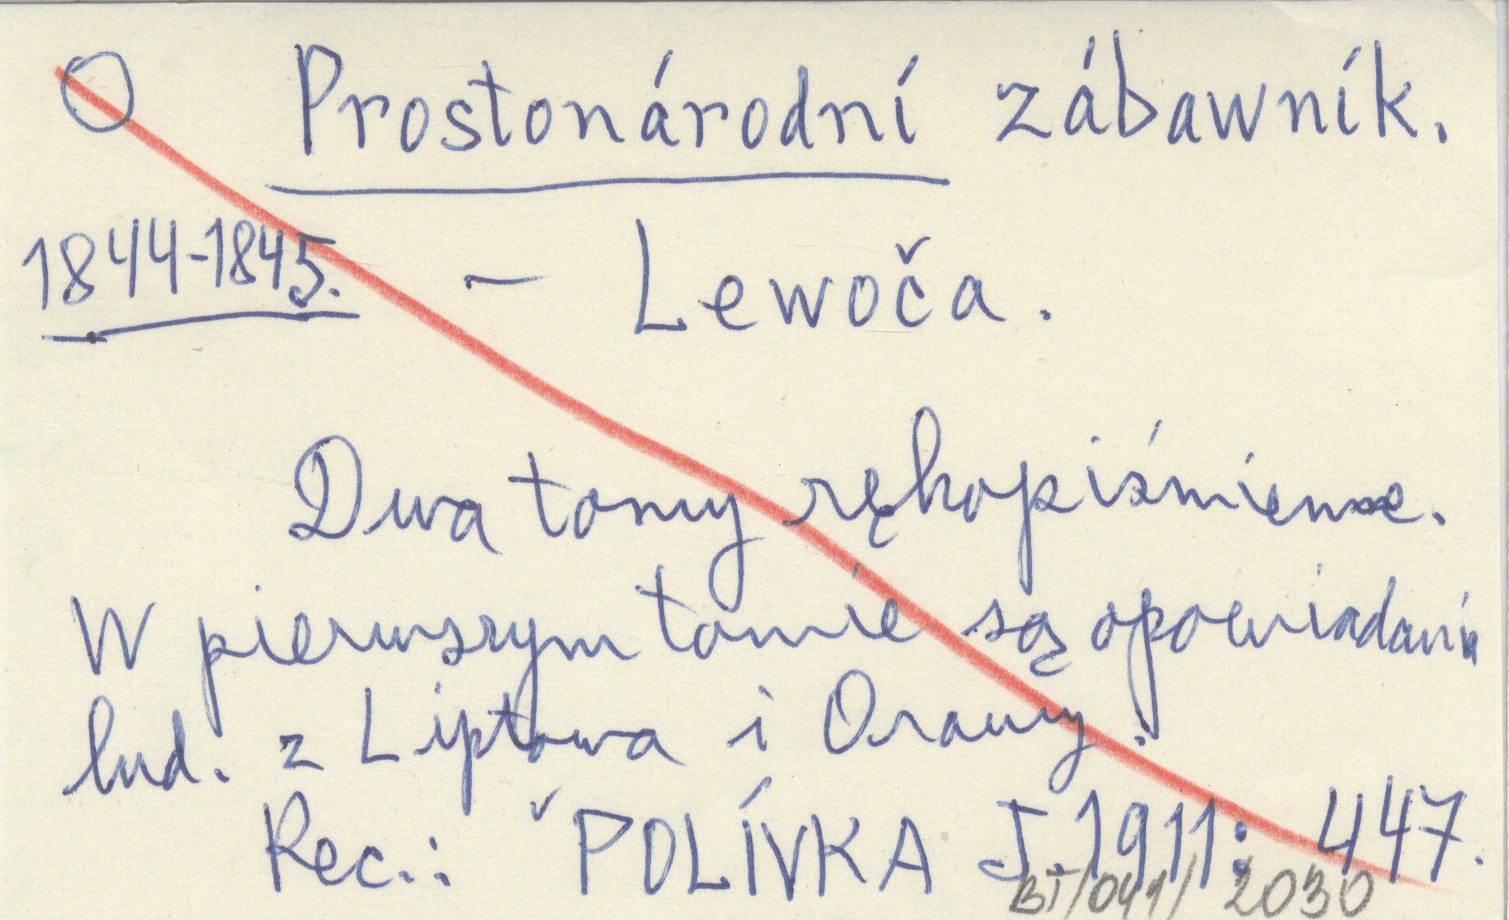 Prostonárodní zábawník.
1844-1845. - Lewoča.
Dwa tomy rękopiśmienne.
W pierwszym tomie są opowiadania
lud. z Liptowa i Orawy.
Rec.: POLÍVKA J. 1911: 447.
BT/041/2030